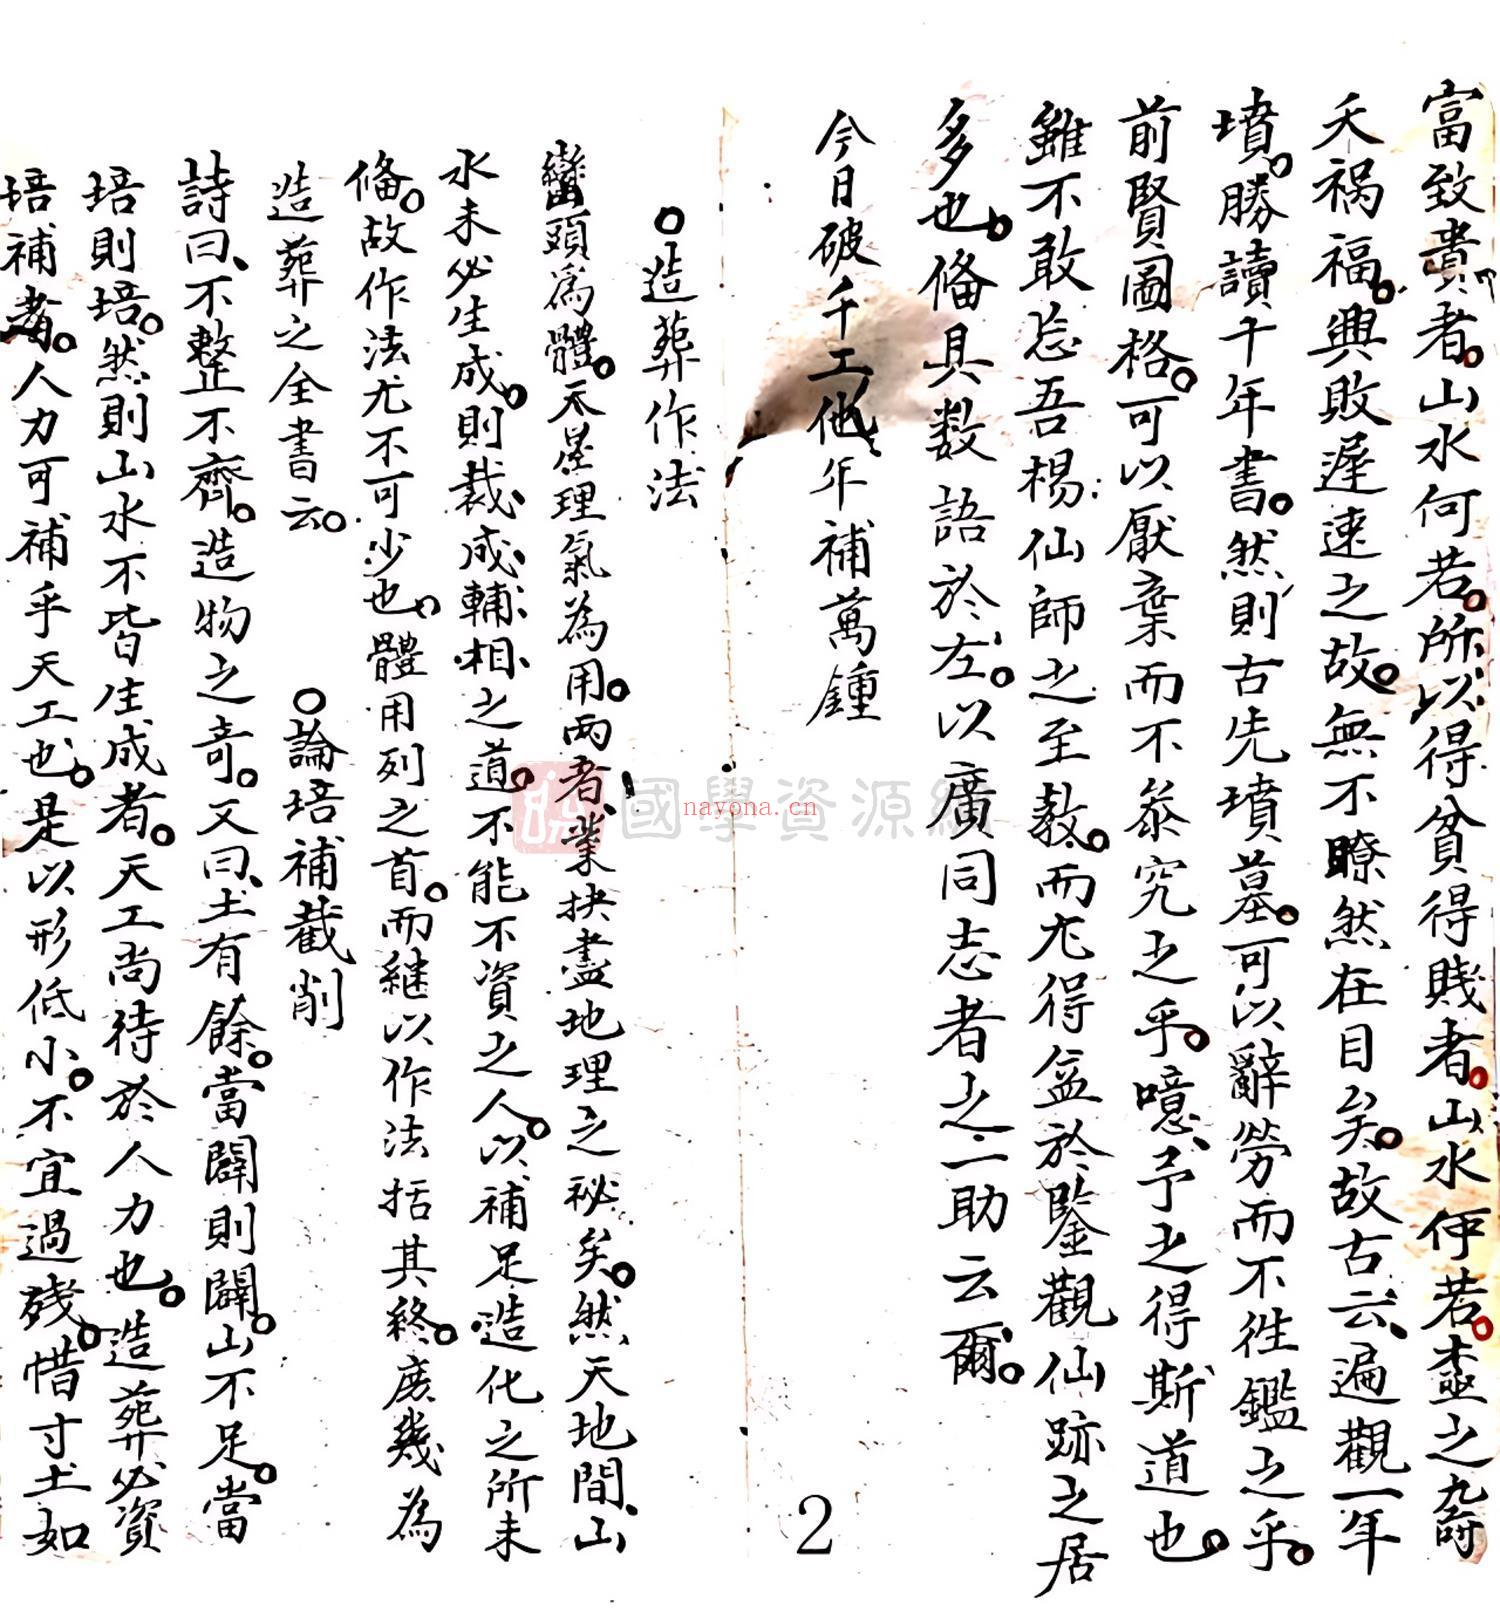 富致貴者。山水何若。所以得貧得賤者。山水何若。壺之窩
夭禍福。興敗遲速之故。無不瞭然在目矣。故古云、遍觀一年
墳。勝讀十年書。然則古先墳墓。可以辭勞而不徃鑑之乎。
前賢圖格。可以厭棄而不叅究之乎。噫、予之得斯道也。
雖不敢忘吾楊仙師之至教。而尤得益於鑒觀仙跡之居
多也。俻具数語於左。以廣同志者之一助云爾。
今日破千工他年補萬鍾
2
○造葬作法
巒頭爲體。天星理氣為用。兩者、業抉盡地理之秘矣。然天地間、山
水未必生成。則裁成輔相之道。不能不資之人。以補足造化之所未
俻。故作法尤不可少也。體用列之首。而継以作法括其終。庶幾為
造葬之全書云。
○論培補截削
詩曰、不整不齊。造物之奇。又曰、土有餘。當闢則闢。山不足。當
培則培。然則山水不皆生成者。天工尚待於人力也。造葬必資
培補者。人力可補乎天工也。是以形低小。不宜過殘。惜寸土如
國學資源網
nayona.cn